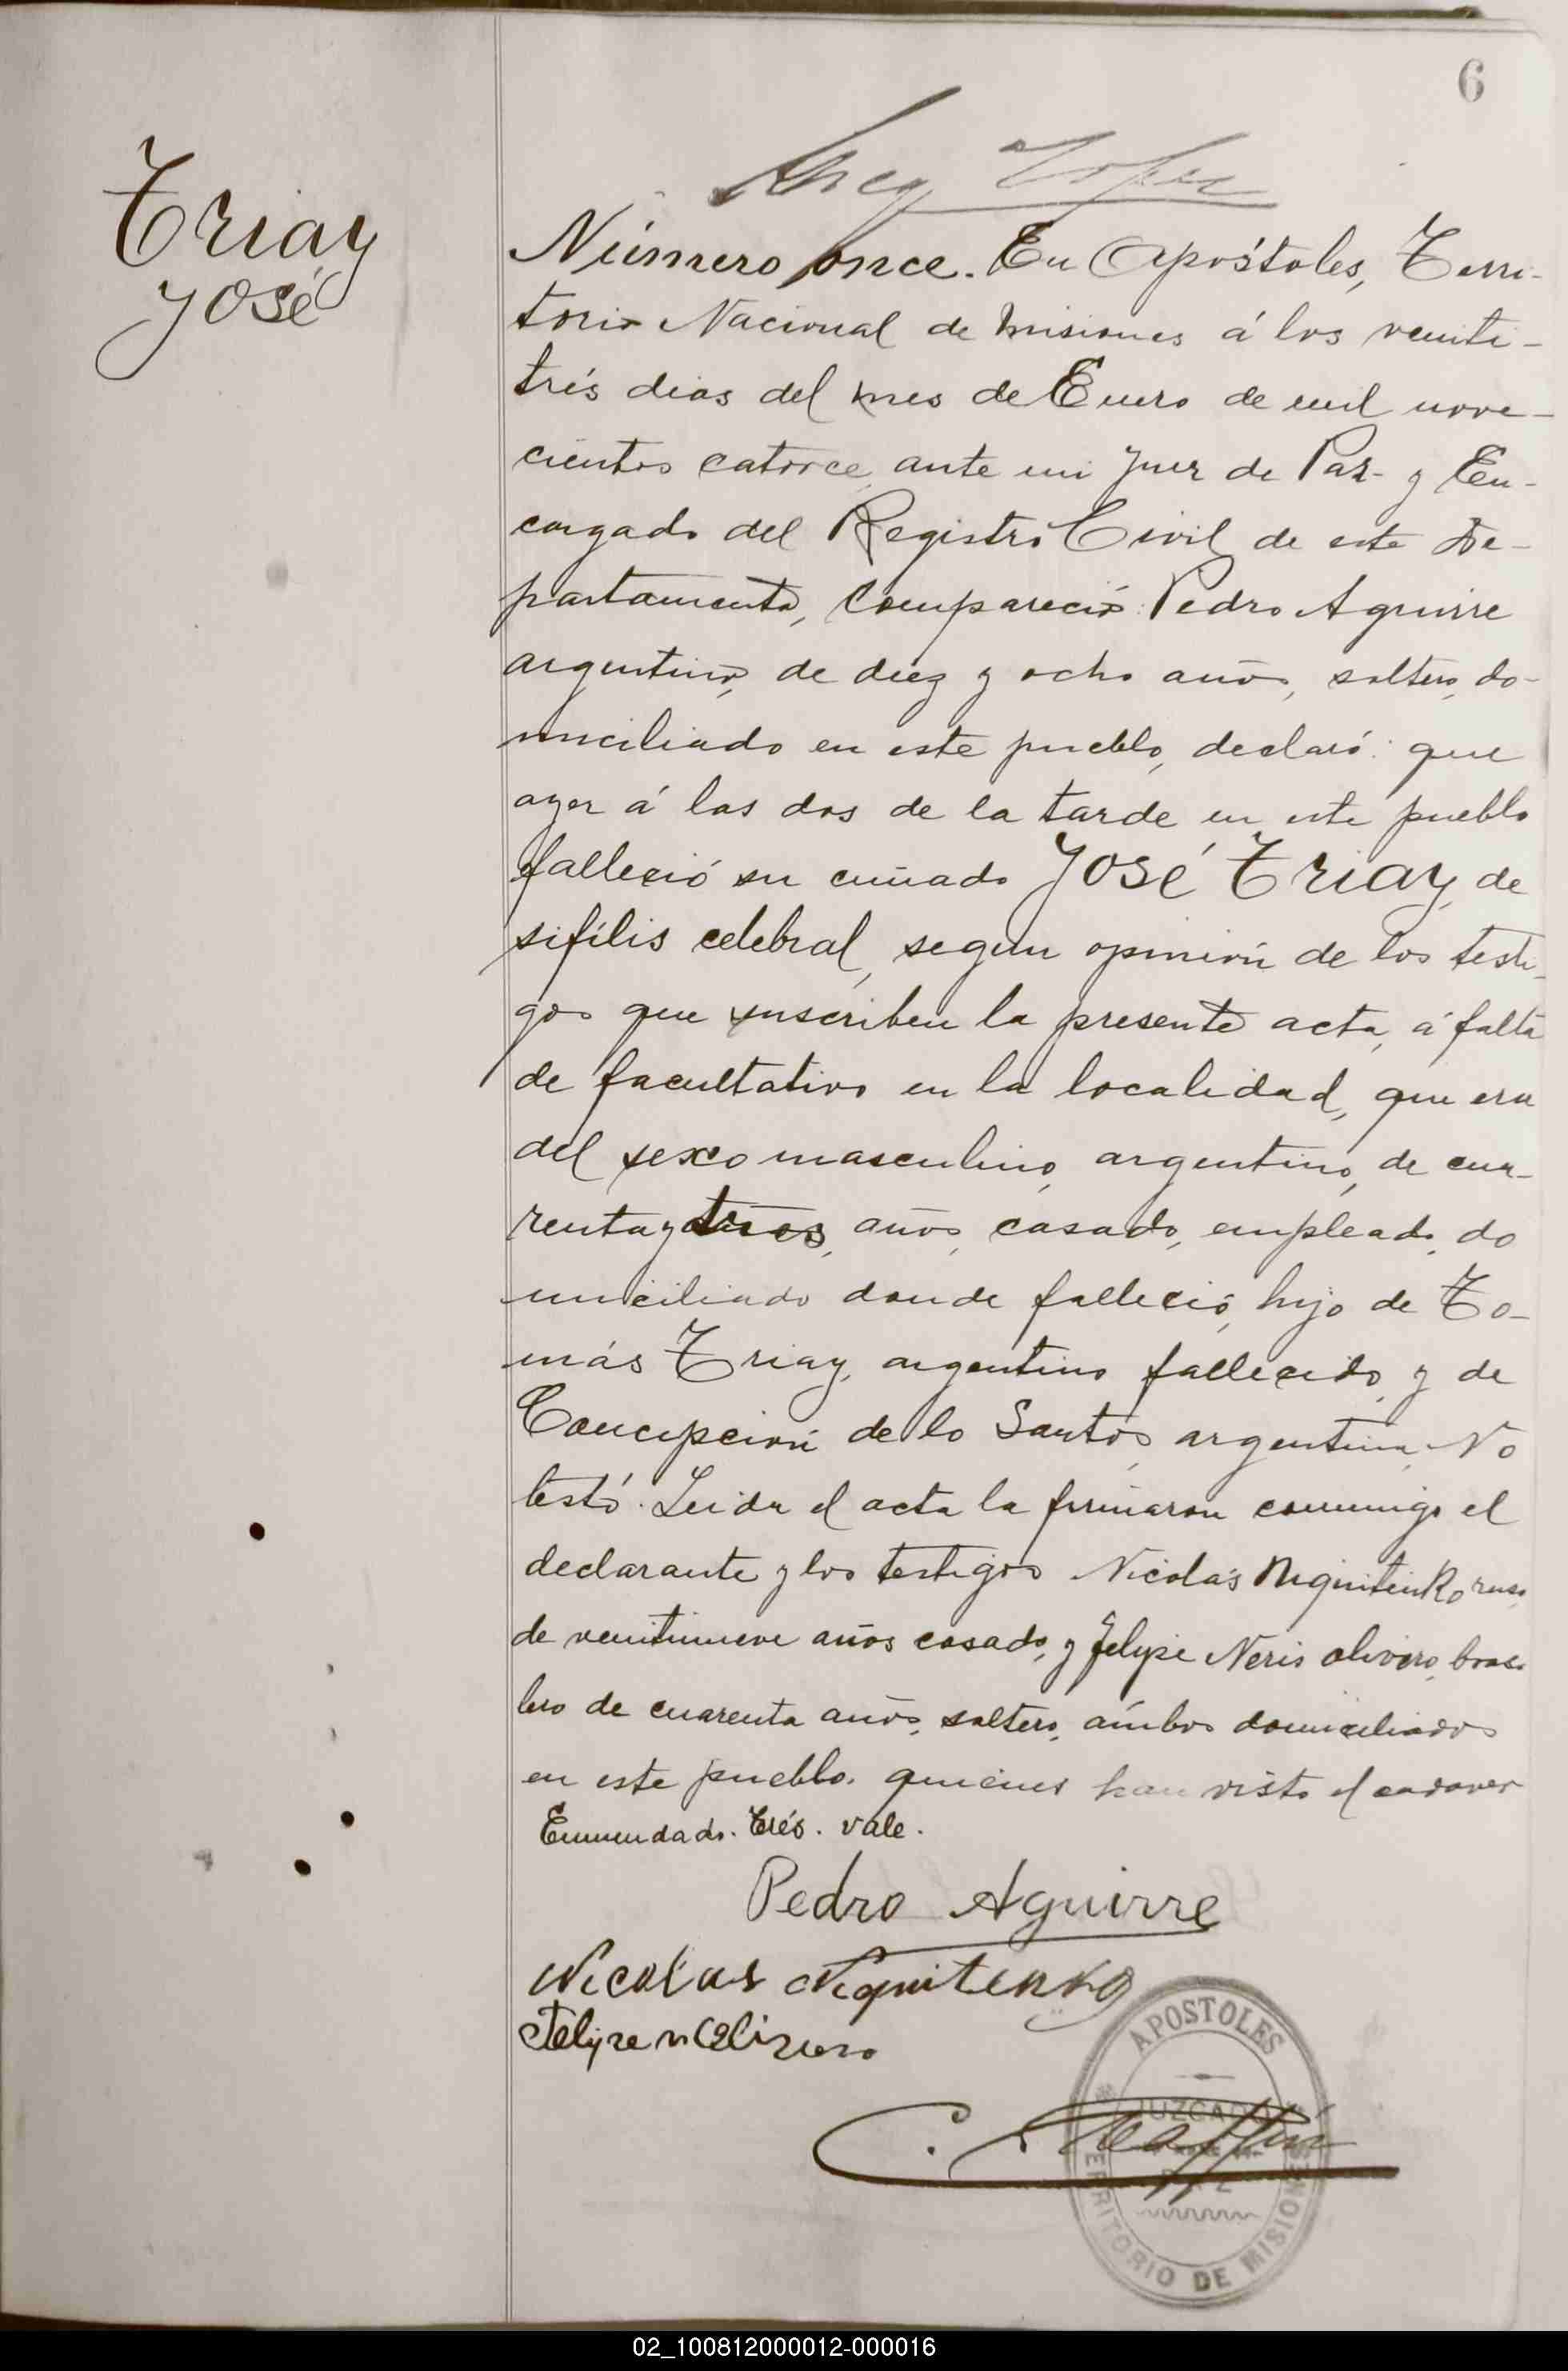 6
Triay
José
Número once. En Apóstoles, Terri-
torio Nacional de Misiones á los veinti-
trés dias del mes de Enero de mil nove-
cientos catorce, ante mi Juez de Paz y En-
cargado del Registro Civil de este De-
partamento, Compareció: Pedro Aguirre
argentino, de diez y ocho años, soltero, do-
miciliado en este pueblo, declaró: que
ayer á las dos de la tarde en este pueblo
falleció su cuñado José Triay, de
sifílis celebral, segun opinión de los testi-
gos que suscriben la presente acta, á falta
de facultativo en la localidad, que era
del sexo masculino, argentino, de cua-
renta y tres, años, casado, empleado, do
miciliado donde falleció, hijo de To-
más Triay, argentino fallecido, y de
Concepción de lo Santos, argentina. No
testó. Leida el acta la firmaron conmigo el
declarante y los testigos Nicolás Niquitenko ruso,
de veintinueve años casado, y Felipe Neris Olivero, brasi
lero de cuarenta años, soltero, ámbos domiciliados
en este pueblo. quienes han visto el cadaver
Enmendado. trés. vale.
Pedro Aguirre
Nicolas Niquitenko
Felipe N Olivero
C.
APOSTOLES
JUZGADO
DE
PAZ
TERRITORIO DE MISIONES
02_100812000012-000016